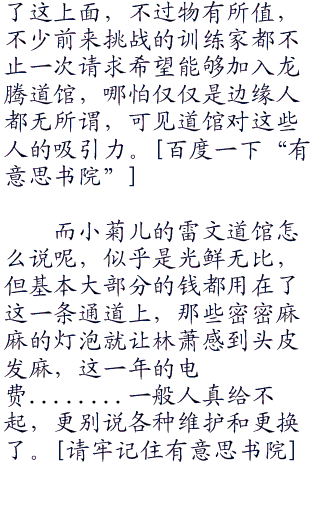 了这上面，不过物有所值，
不少前来挑战的训练家都不
止一次请求希望能够加入龙
腾道馆，哪怕仅仅是边缘人
都无所谓，可见道馆对这些
人的吸引力。[百度一下“有
意思书院”]
而小菊儿的雷文道馆怎
么说呢，似乎是光鲜无比，
但基本大部分的钱都用在了
这一条通道上，那些密密麻
麻的灯泡就让林萧感到头皮
发麻，这一年的电
费........一般人真给不
起，更别说各种维护和更换
了。[请牢记住有意思书院]